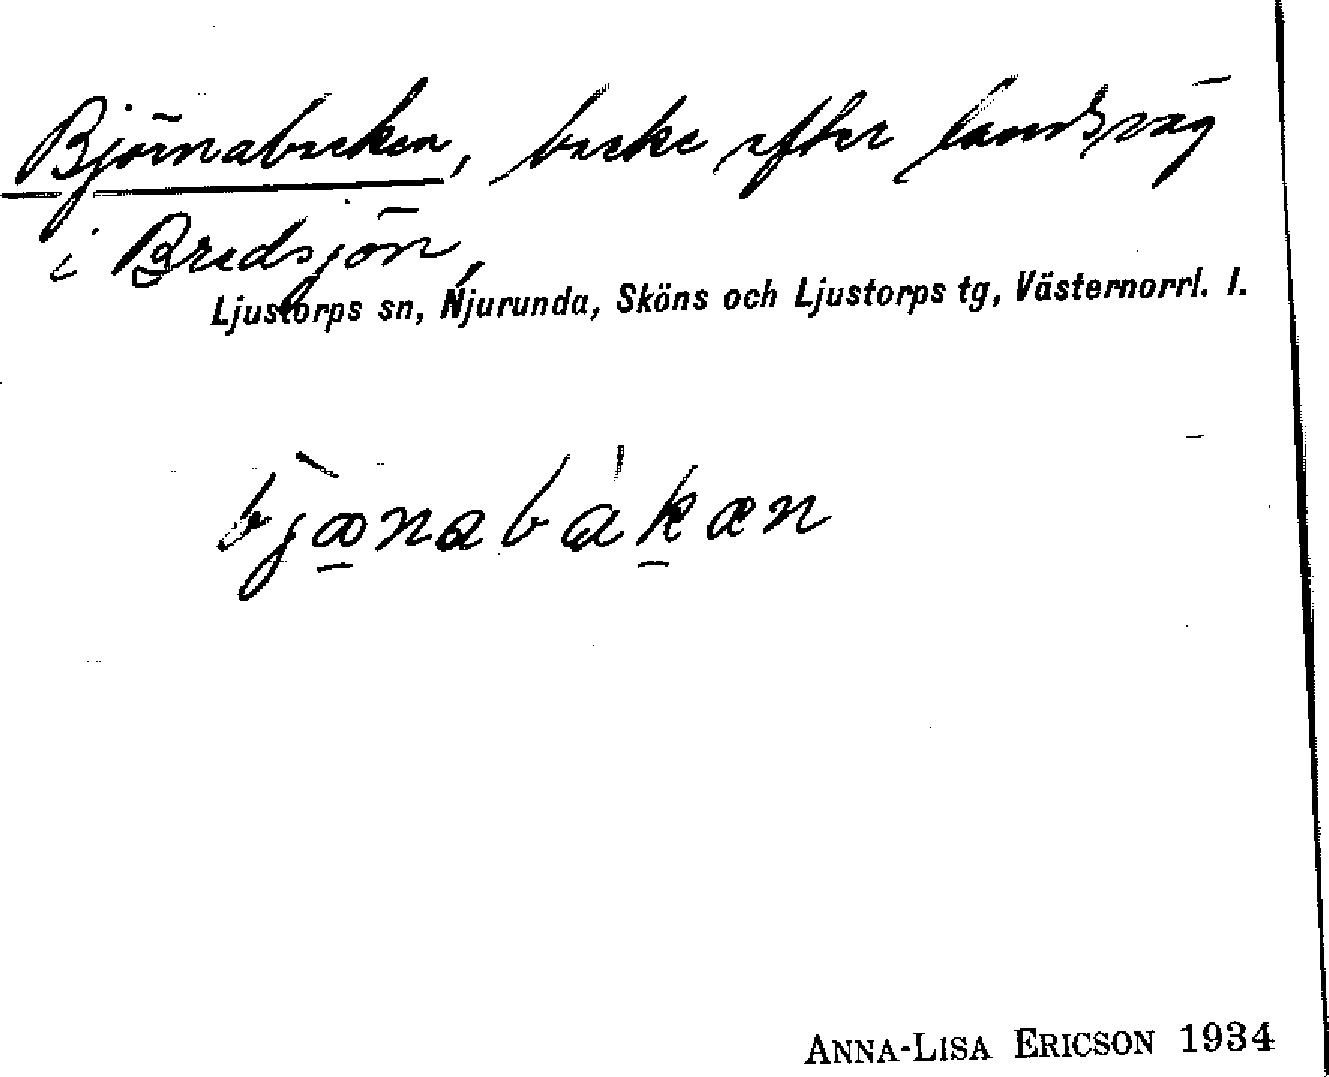 Björnabacken, backe efter landsväg
i Bredsjön,
Ljustorps sn, Njurunda, Sköns och Ljustorps tg, Västernorrl. l.
ANNA-LISA ERICSON 1934